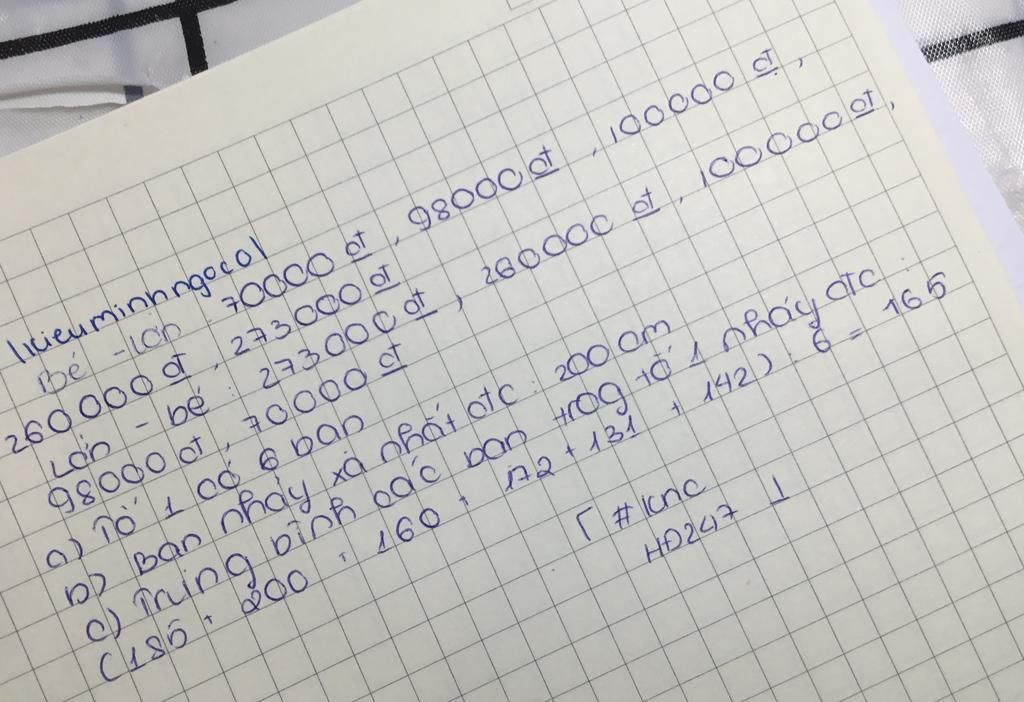 kieuminhngoc01
Bé - lớn: 70000đ, 98000đ, 100000đ,
260000đ, 273000đ
Lớn - bé: 273000đ, 260000đ, 100000đ,
98000đ, 70000đ
a) Tổ 1 có 6 bạn
b) Bạn nhảy xa nhất đtc: 200cm
c) Trung bình các bạn trog tổ 1 nhảy đtc:
(185 + 200 + 160 + 172 + 131 + 142) : 6 = 165
[ #knc
HD247 ]